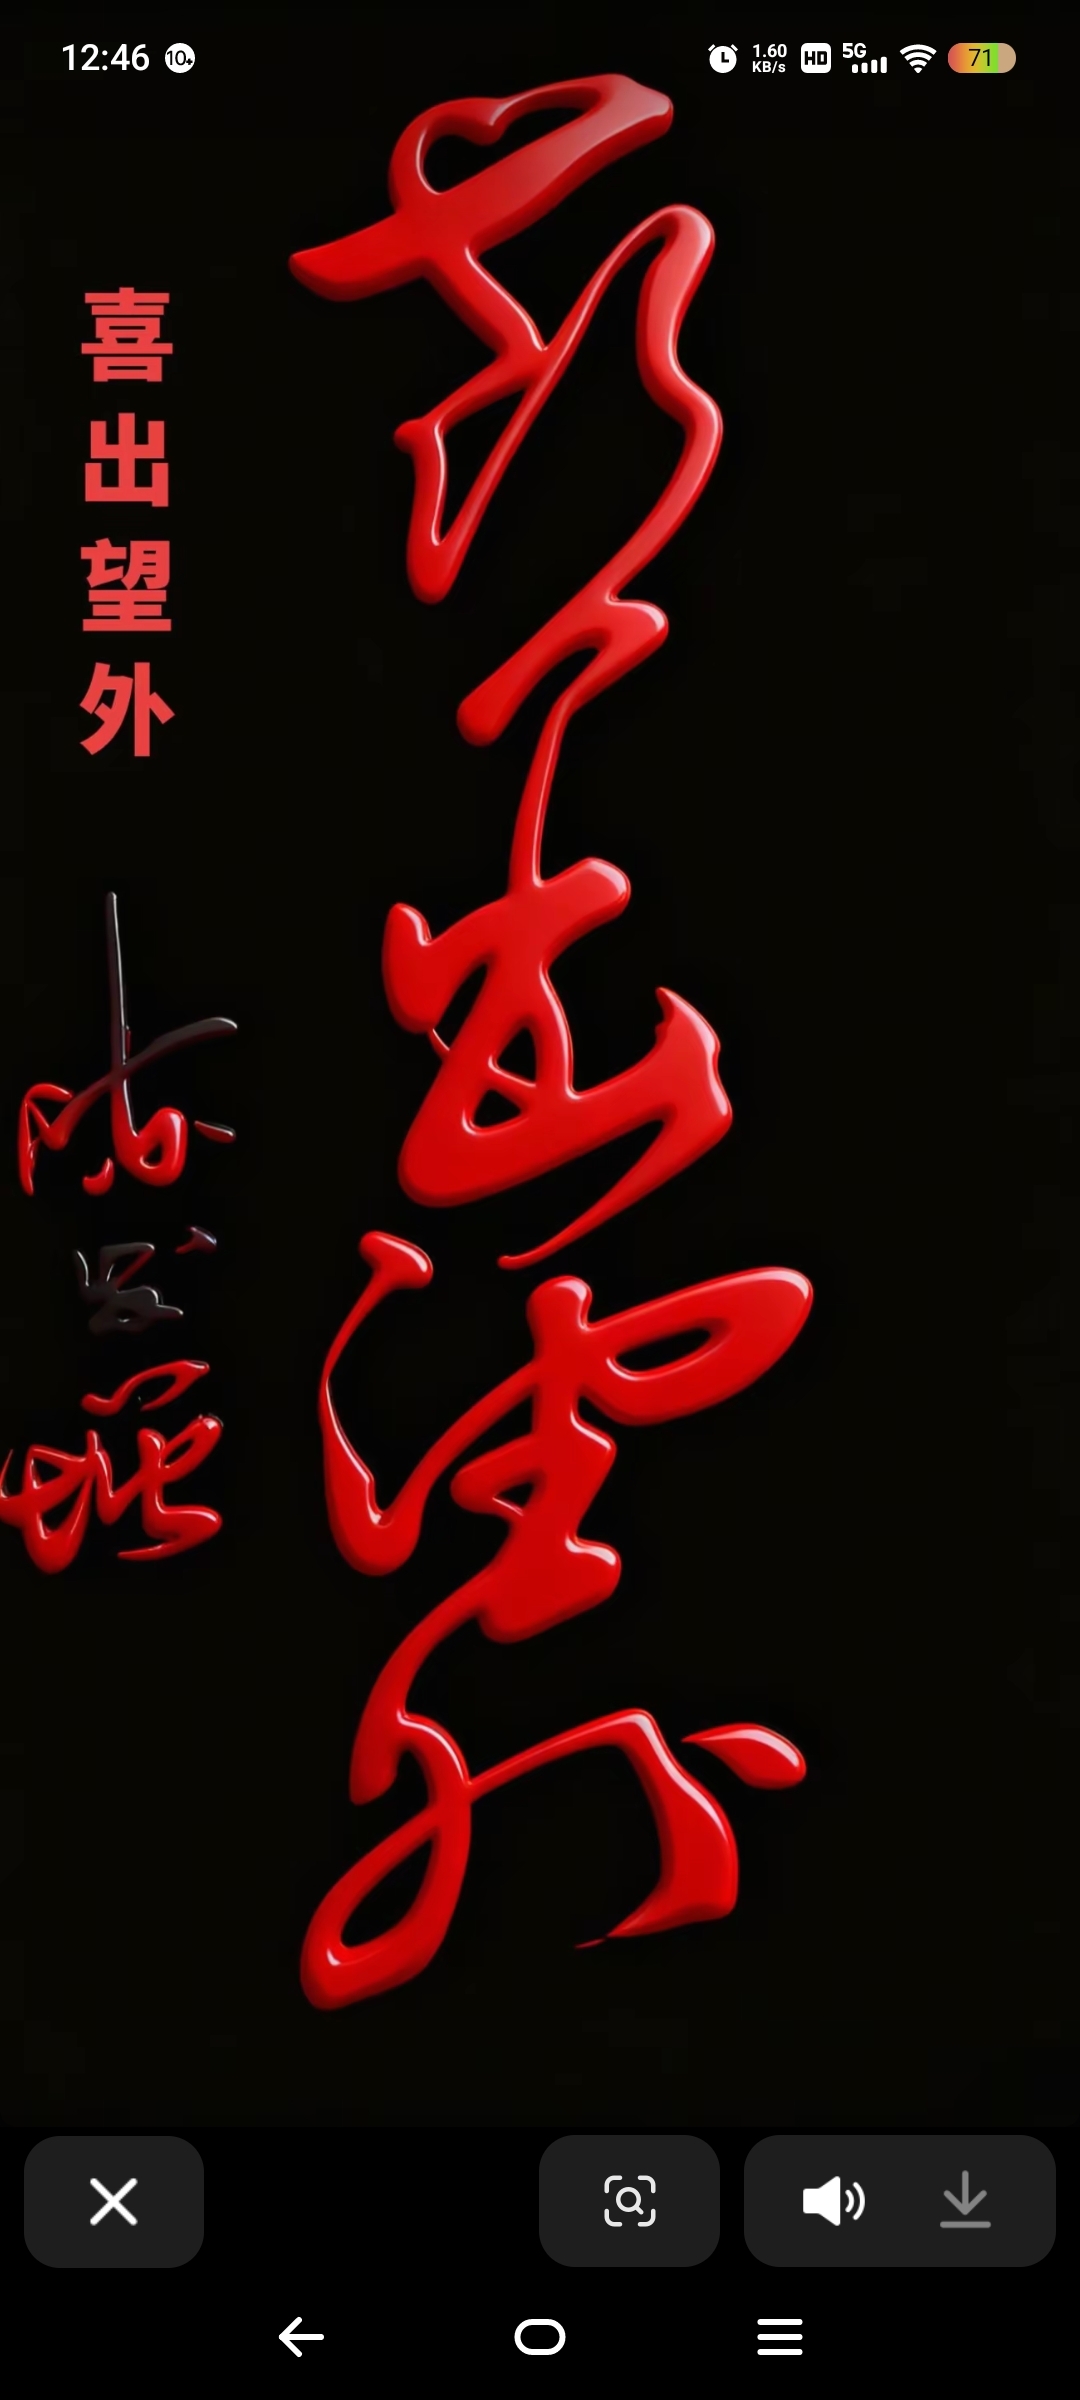 12:46
10+
1.60
KB/s
HD
5G
71
喜出望外
喜出望外